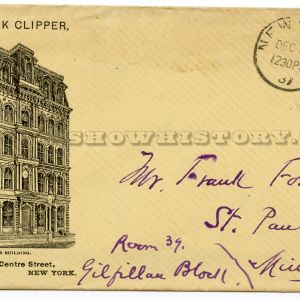 RK CLIPPER,
NEW
DEC
1230P
SHOWHISTORY.
BUILDING.
Centre Street,
NEW YORK.
Mr. Frank
St. Pau
Room 39.
Gilfillan Block.